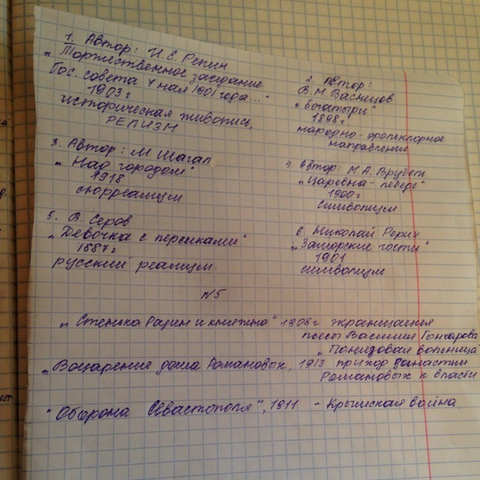 1. Автор: И. Е. Репин
„Торжественное заседание
Гос. совета 7 мая 1901 года..."
1903 г
историческая живопись,
РЕЛИЗМ
2. Автор:
В. М Васнецов
„Богатыри"
1898 г.
народно-фольклорное
направление
3. Автор: М Шагал
„Над городом"
1918
сюрреализм
4. Автор: М. А. Врубель
„Царевна-лебедь"
1900 г
символизм
5. В. Серов
„Девочка с персиками"
1887 г
русский реализм.
6. Николай Рерих
„Заморские гости"
1901
символизм
№5
„Стенька Разин и княжна" 1908 г. экранизация
пьесы Василия Гончарова
„Понизовая вольница"
„Воцарение дома Романовых", 1913 приход династии
Романовых к власти
"Оборона Севастополя", 1911 - Крымская война